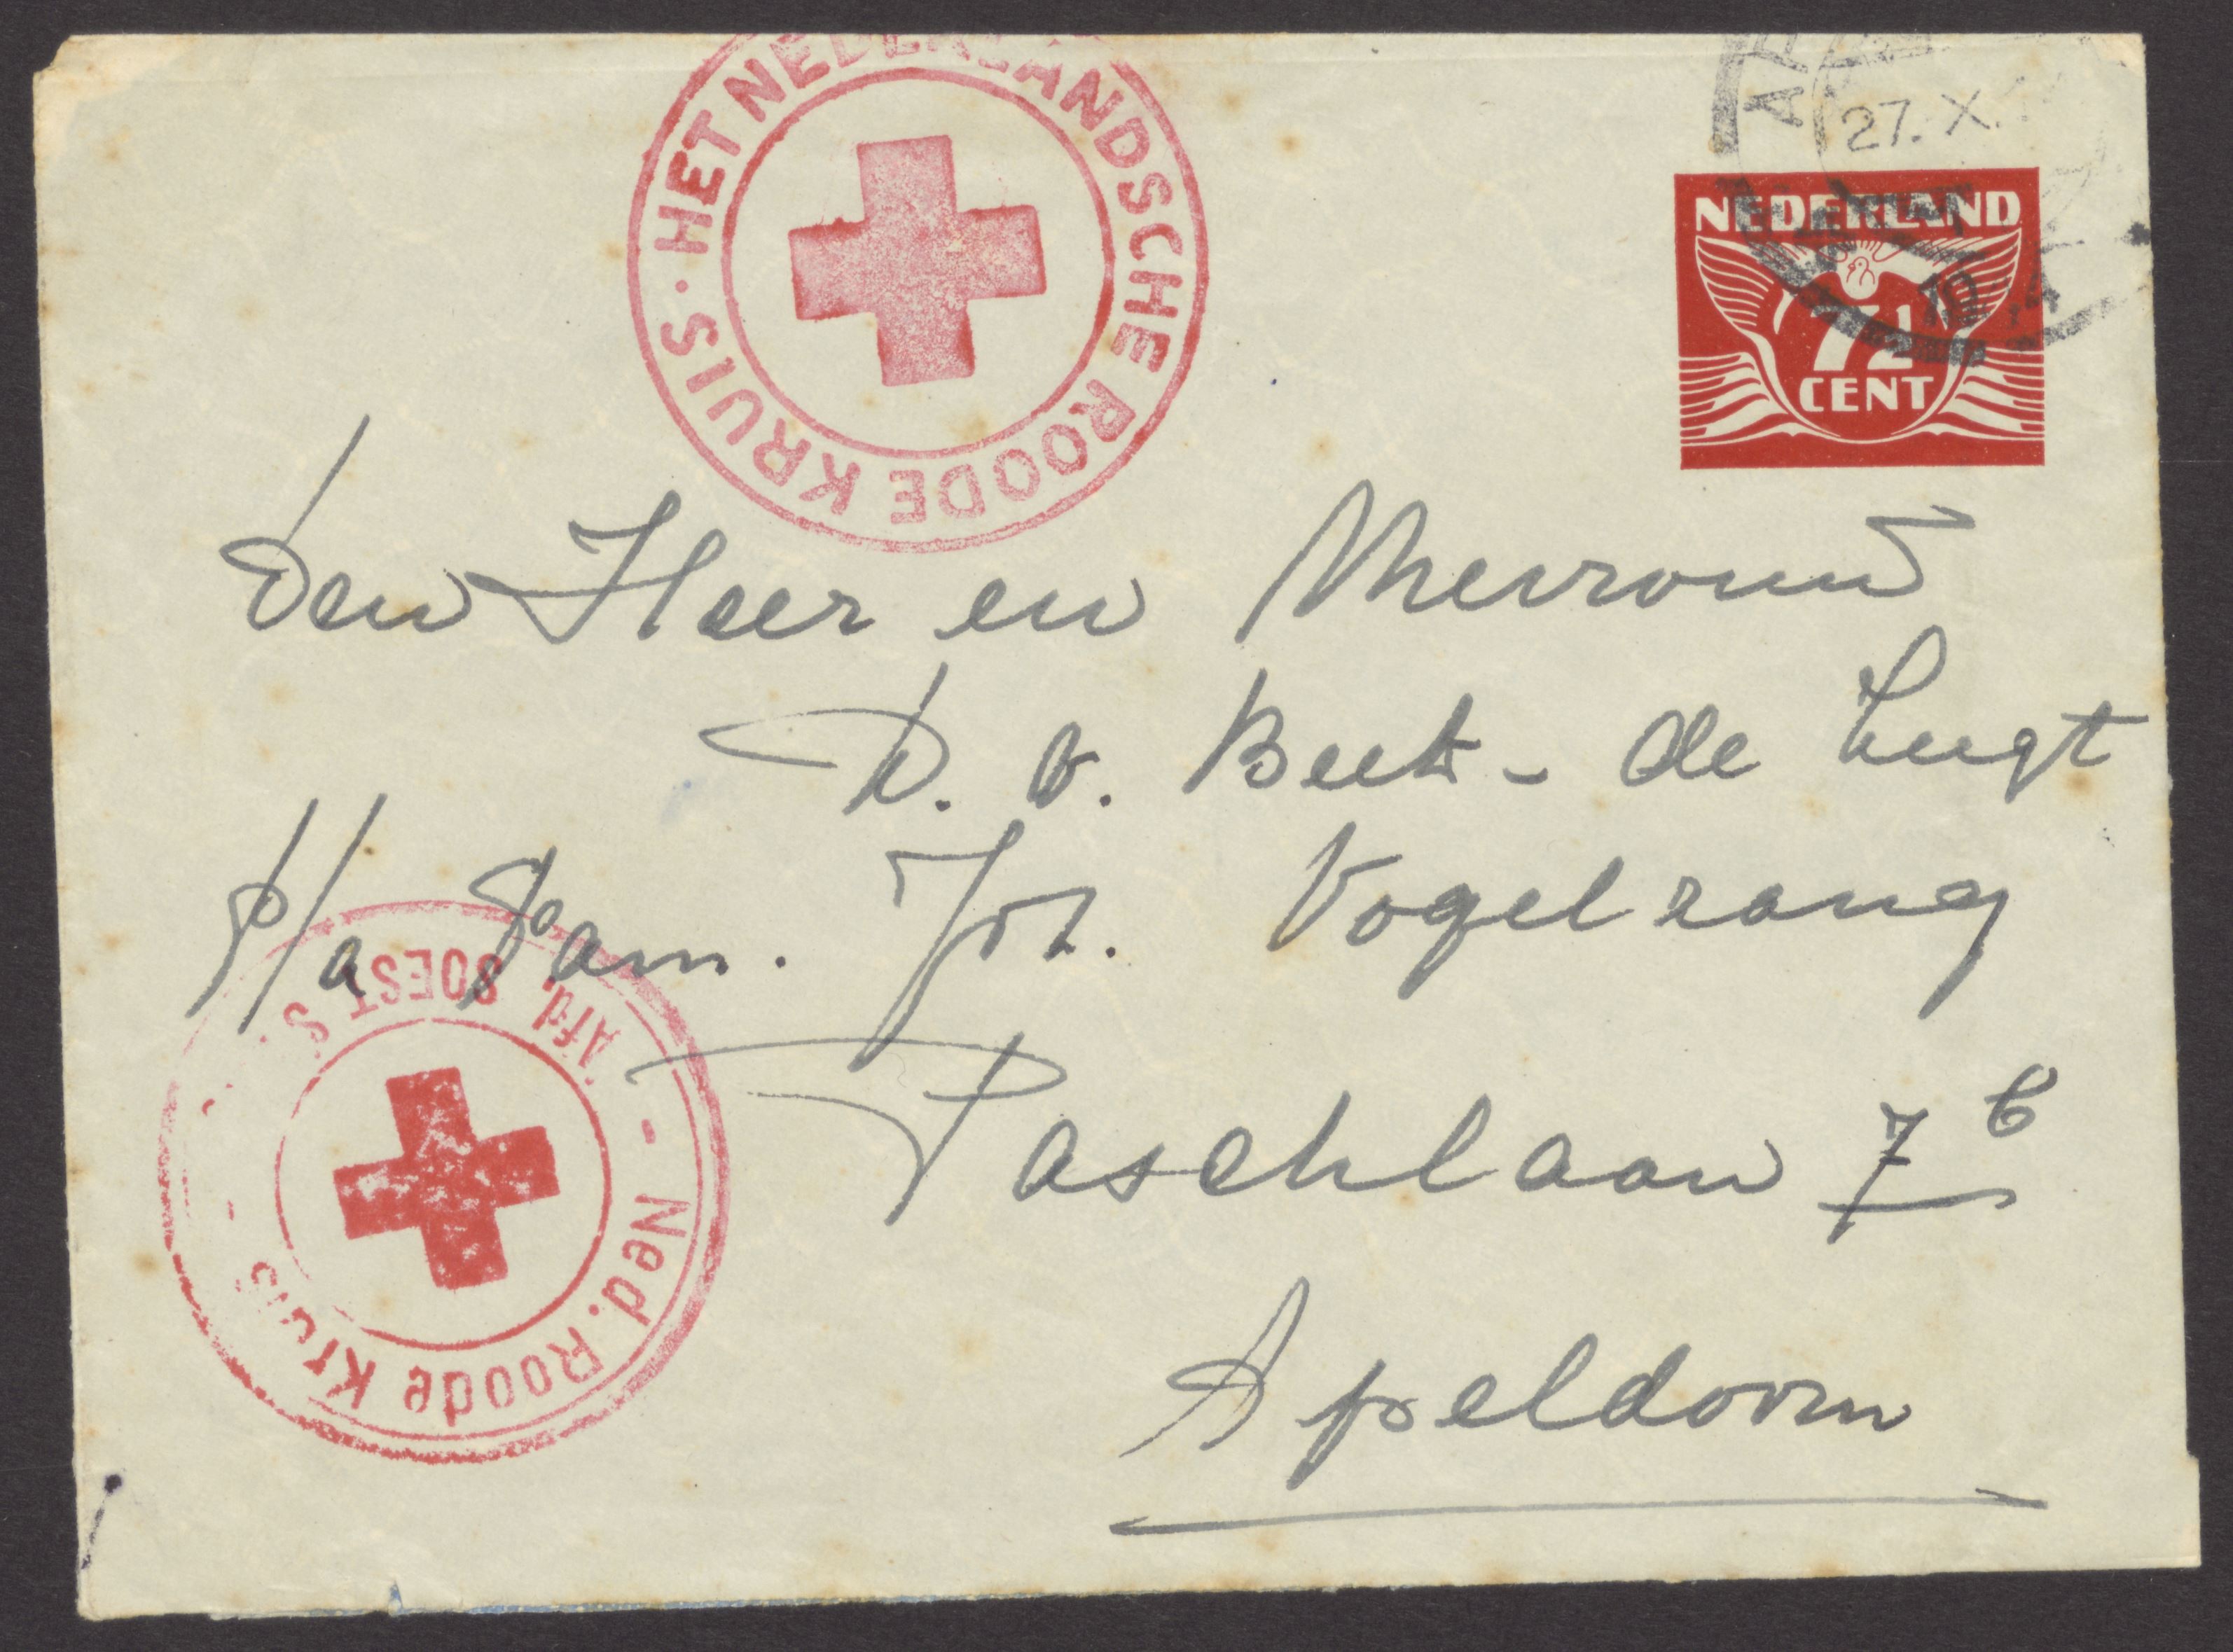 HET NEDERLANDSCHE ROODE KRUIS ·
AP
27. X.
NEDERLAND
7½
CENT
den Heer en Mevrouw
D. v. Beek - de Lugt
p/a Fam. Joh. Vogelzang
Paschlaan 7 b
Apeldoorn
- Ned. Roode Kruis -
Afd. SOEST